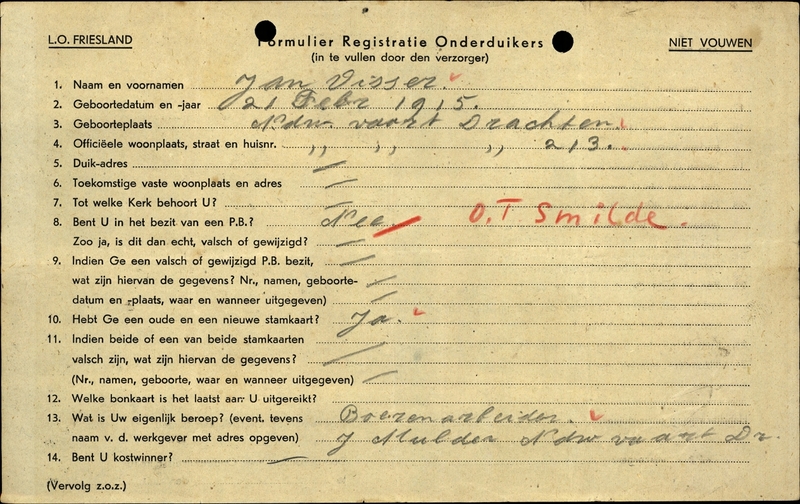 L.O. FRIESLAND
Formulier Registratie Onderduikers
NIET VOUWEN
(in te vullen door den verzorger)
1. Naam en voornamen Jan Visser
2. Geboortedatum en -jaar 21 Febr 1915.
3. Geboorteplaats Ndw. vaart Drachten
4. Officiëele woonplaats, straat en huisnr. ,, ,, ,, 213.
5. Duik-adres —
6. Toekomstige vaste woonplaats en adres —
7. Tot welke Kerk behoort U? —
8. Bent U in het bezit van een P.B.? Nee O.T Smilde.
Zoo ja, is dit dan echt, valsch of gewijzigd? —
9. Indien Ge een valsch of gewijzigd P.B. bezit, —
wat zijn hiervan de gegevens? Nr., namen, geboorte- —
datum en -plaats, waar en wanneer uitgegeven) —
10. Hebt Ge een oude en een nieuwe stamkaart? Ja.
11. Indien beide of een van beide stamkaarten
valsch zijn, wat zijn hiervan de gegevens? —
(Nr., namen, geboorte, waar en wanneer uitgegeven) —
12. Welke bonkaart is het laatst aan U uitgereikt?
13. Wat is Uw eigenlijk beroep? (event. tevens Boerenarbeider.
naam v. d. werkgever met adres opgeven) J Mulder Ndw vaart Dr.
14. Bent U kostwinner? —
(Vervolg z.o.z.)